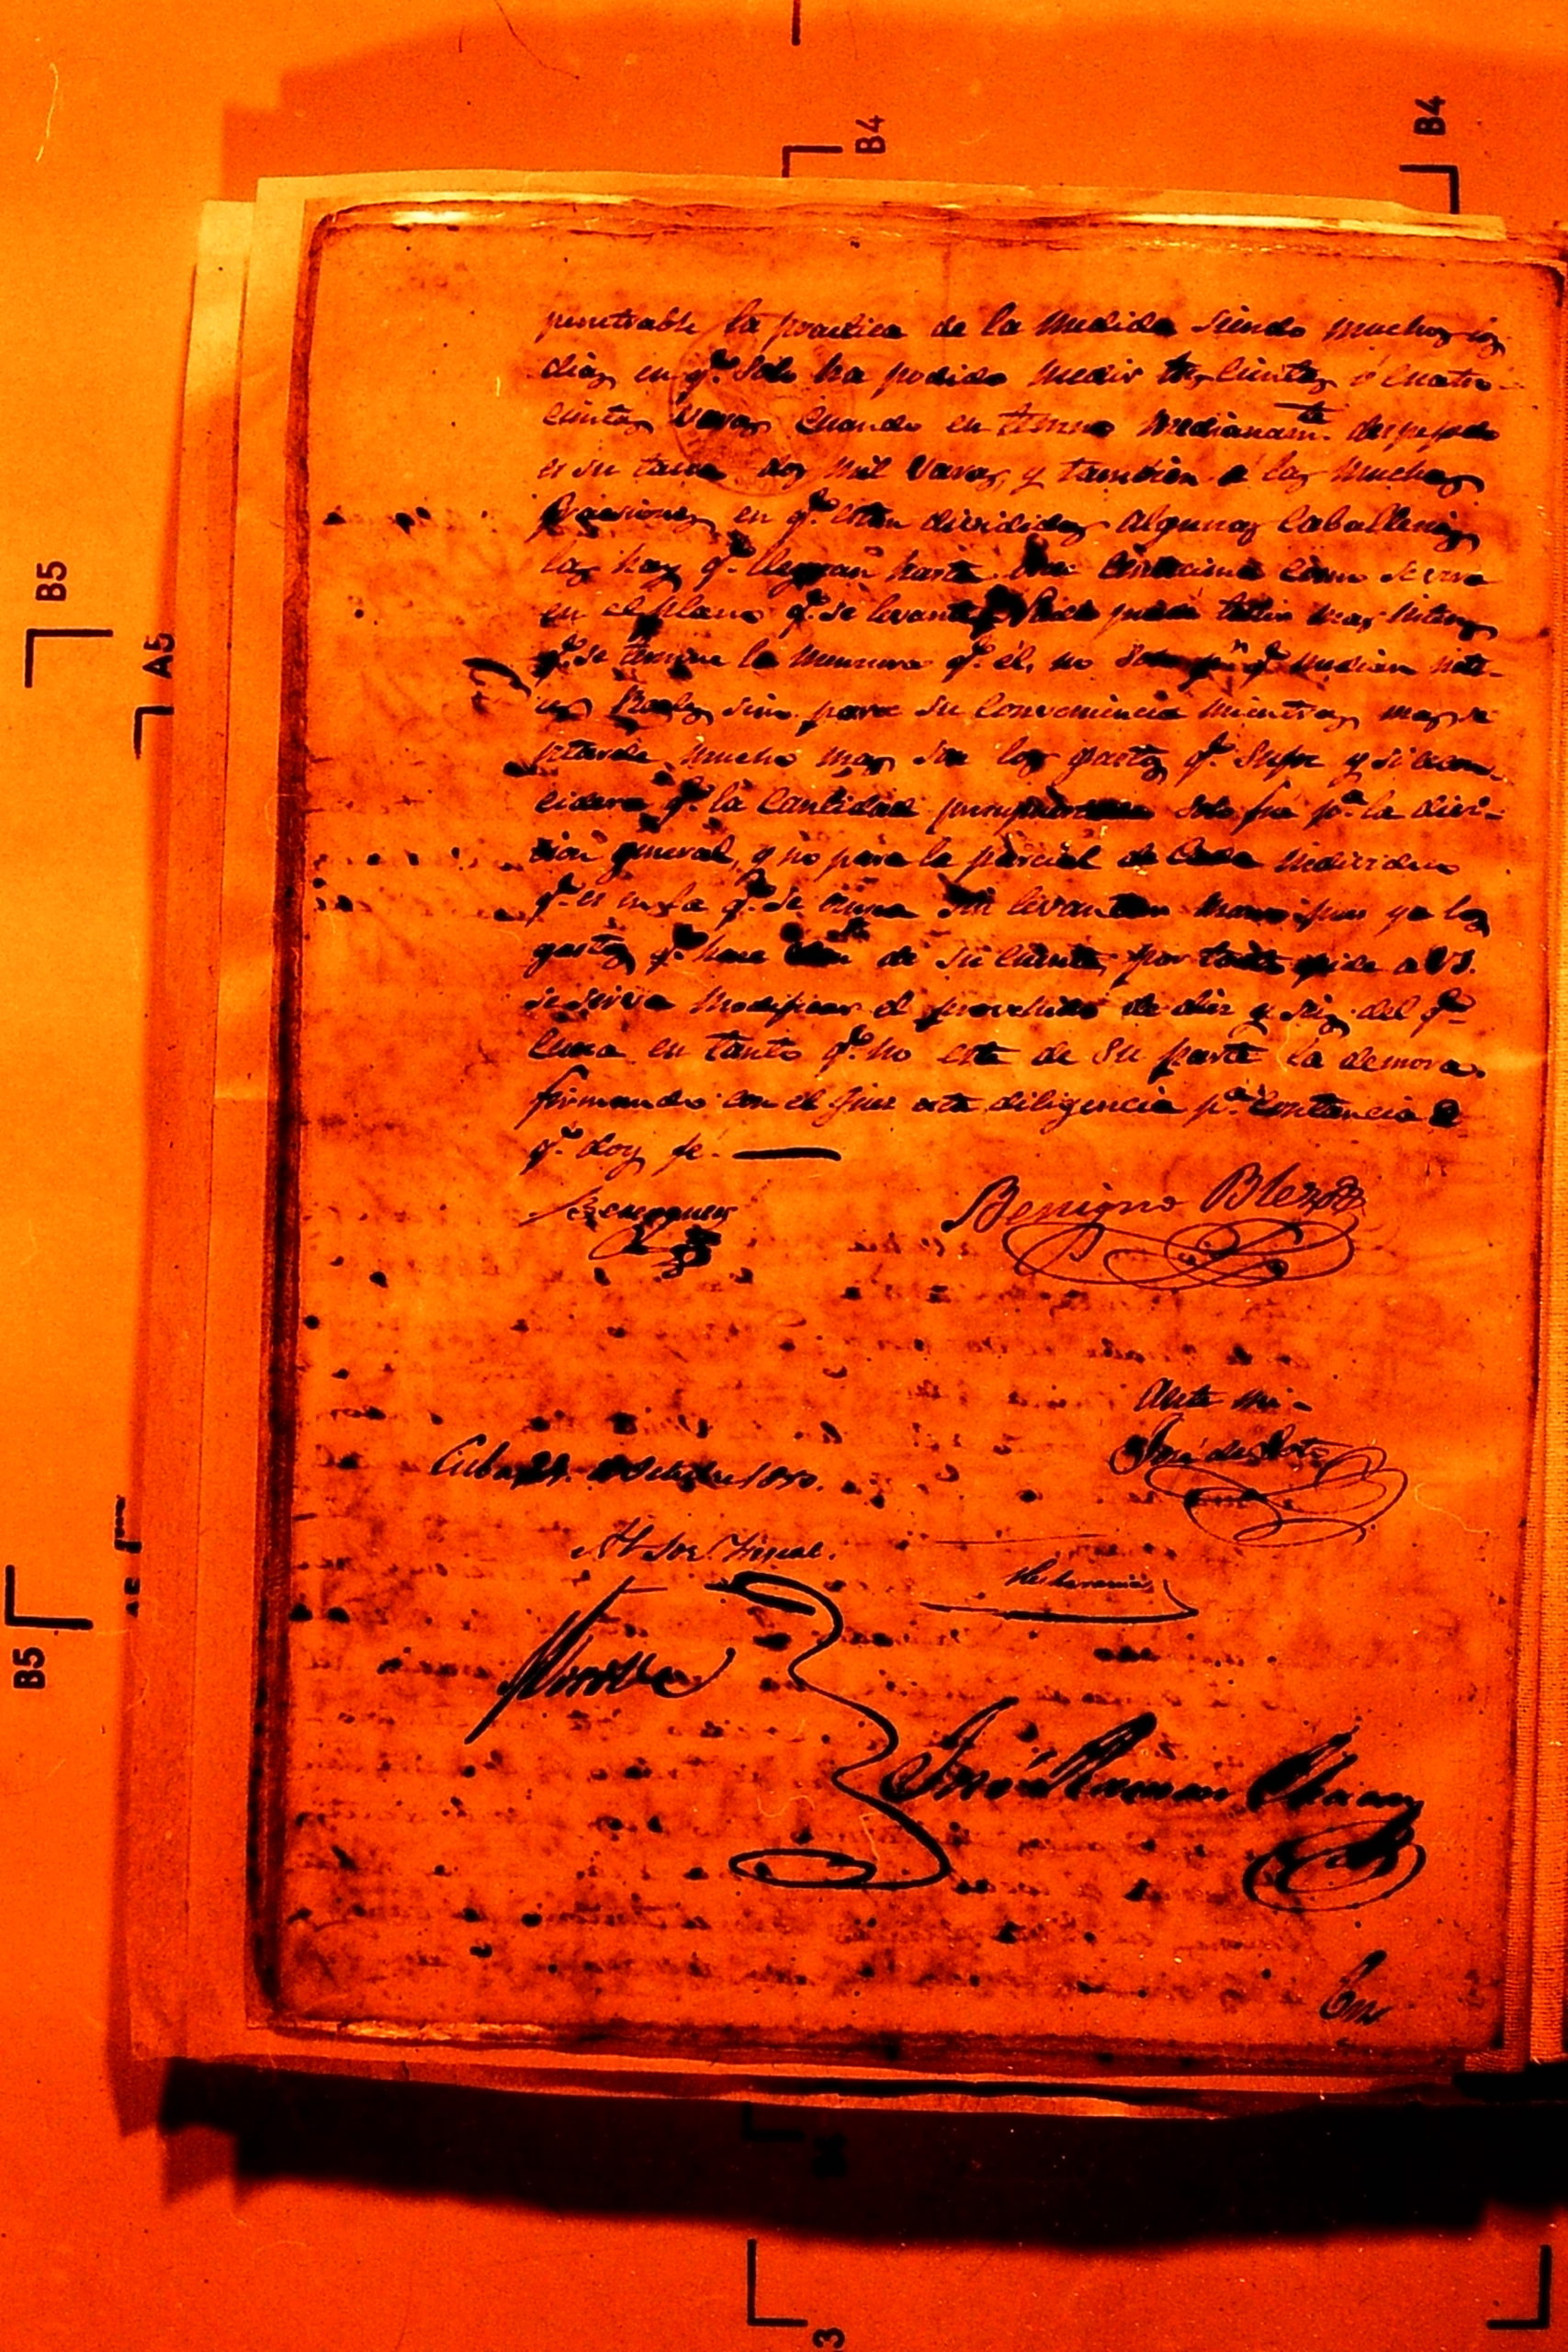 B4
B4
penetrable la practica de la medida siendo muchos los
dias en q.e solo ha podido medir trescientas ó cuatro-
cientas varas cuando en terreno medianam.te despejado
es su tarea dos mil varas, y tambien á las muchas
fracciones en q.e estan divididas algunas Caballerias
las hay q.e llegan hasta una centecima como se vera
en el plano q.e se levante
q.e se termine la mensura q.e él, no solo p.r q.e median inte-
reses Reales sino para su conveniencia mientras mas se
retarde mucho mas son los gastos q.e sufre y si se con-
cidera q.e la cantidad solo fué p.a la divi-
sion general, y no para la parcial de cada individuo
q.e es en la q.e se sin levantar mano pues ya los
gastos q.e hace son de su cuenta, por tanto pide a VS.
se sirva modificar el provehido de diez y seis del q.e
cursa en tanto q.e no está de su parte la demora.
firmando con el Juez esta diligencia p.a contancia de
q.e doy fé.
Benigno
Ante mi-
José de
Cuba
Al Sor. Fiscal.
José Ramon
B5
A5
B5
3